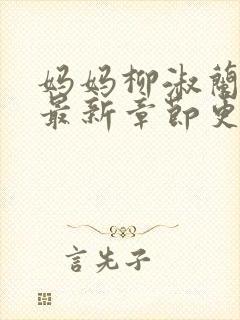 妈妈柳淑蘭
最新章節更
言先子